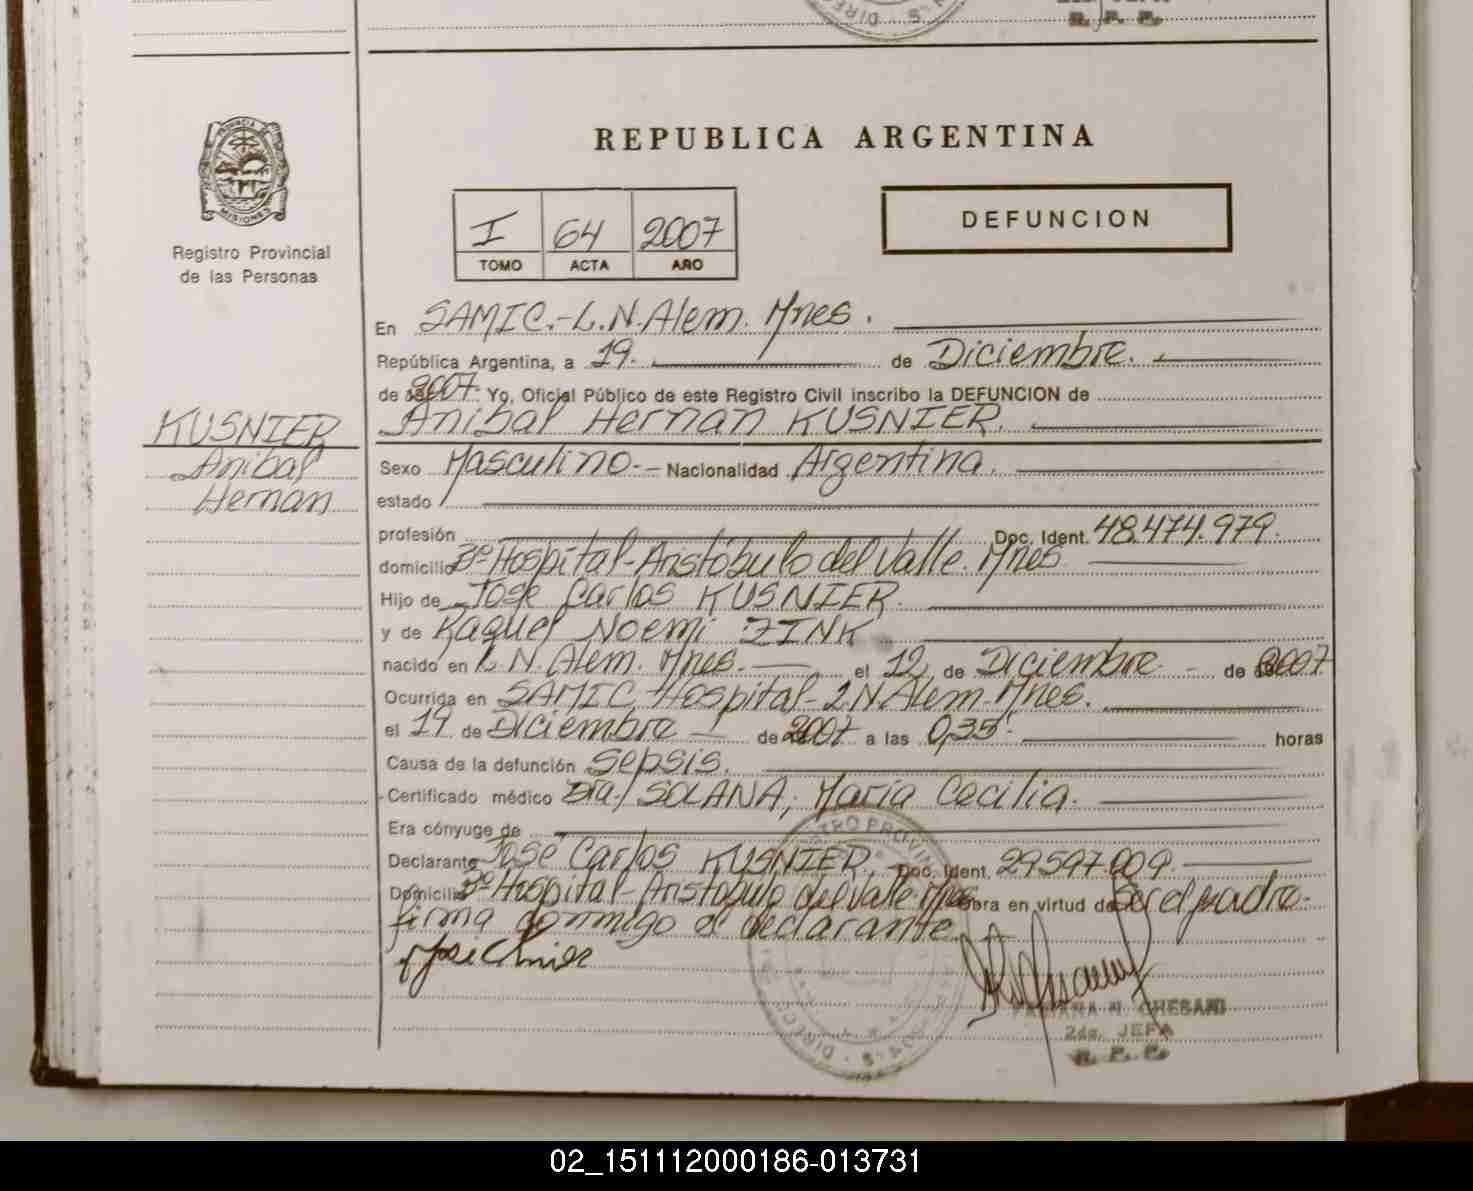 REPUBLICA ARGENTINA
PROVINCIA DE
MISIONES
Registro Provincial
de las Personas
I 64 2007
TOMO ACTA AÑO
DEFUNCION
En SAMIC.-L.N.Alem. Mnes.
República Argentina, a 19. de Diciembre.
de 2007. Yo, Oficial Público de este Registro Civil inscribo la DEFUNCION de
Anibal Hernan KUSNIER.
KUSNIER
Anibal
Hernan
Sexo Masculino.- Nacionalidad Argentina.
estado
profesión Doc. Ident. 48.474.979.
domicilio Bº Hospital-Aristóbulo del Valle. Mnes.
Hijo de José Carlos KUSNIER.
y de Raquel Noemi ZINK
nacido en L.N. Alem. Mnes. el 12 de Diciembre de 2007
Ocurrida en SAMIC, Hospital-L.N.Alem-Mnes.
el 19 de Diciembre de 2007 a las 0,35'. horas
Causa de la defunción Sepsis.
Certificado médico Dra./ SOLANA, María Cecilia.
Era cónyuge de
Declarante José Carlos KUSNIER, Doc. Ident. 29.597.009.
Domicilio Bº Hospital-Aristóbulo del Valle-Mnes Obra en virtud de Ser el padre.
firma conmigo el declarante.
N. CHESANI
2da. JEFA
R. P. P.
02_151112000186-013731